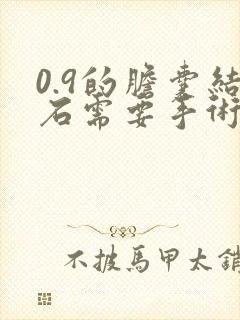 0.9的膽囊結
石需要手術
不披馬甲太銷